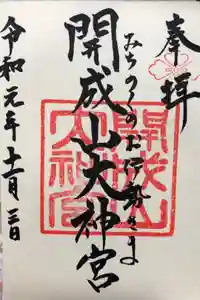 奉拝
みちのくのお伊勢さま
開成山大神宮
開成山大神宮
令和元年十一月三日